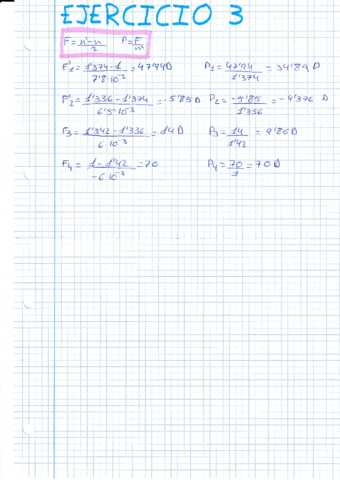 EJERCICIO 3
F = n'-n / 2   P = F / n'
F1 = 1'374-1 / 7'8·10^-3 = 47'94D   P1 = 47'94 / 1'374 = 34'89 D
F2 = 1'336-1'374 / 6'5·10^-3 = -5'85 D   P2 = -5'85 / 1'336 = -4'376 D
F3 = 1'342-1'336 / 6·10^-3 = 14D   P3 = 14 / 1'42 = 9'86D
F4 = 1-1'42 / -6·10^-3 = 70   P4 = 70 / 1 = 70 D